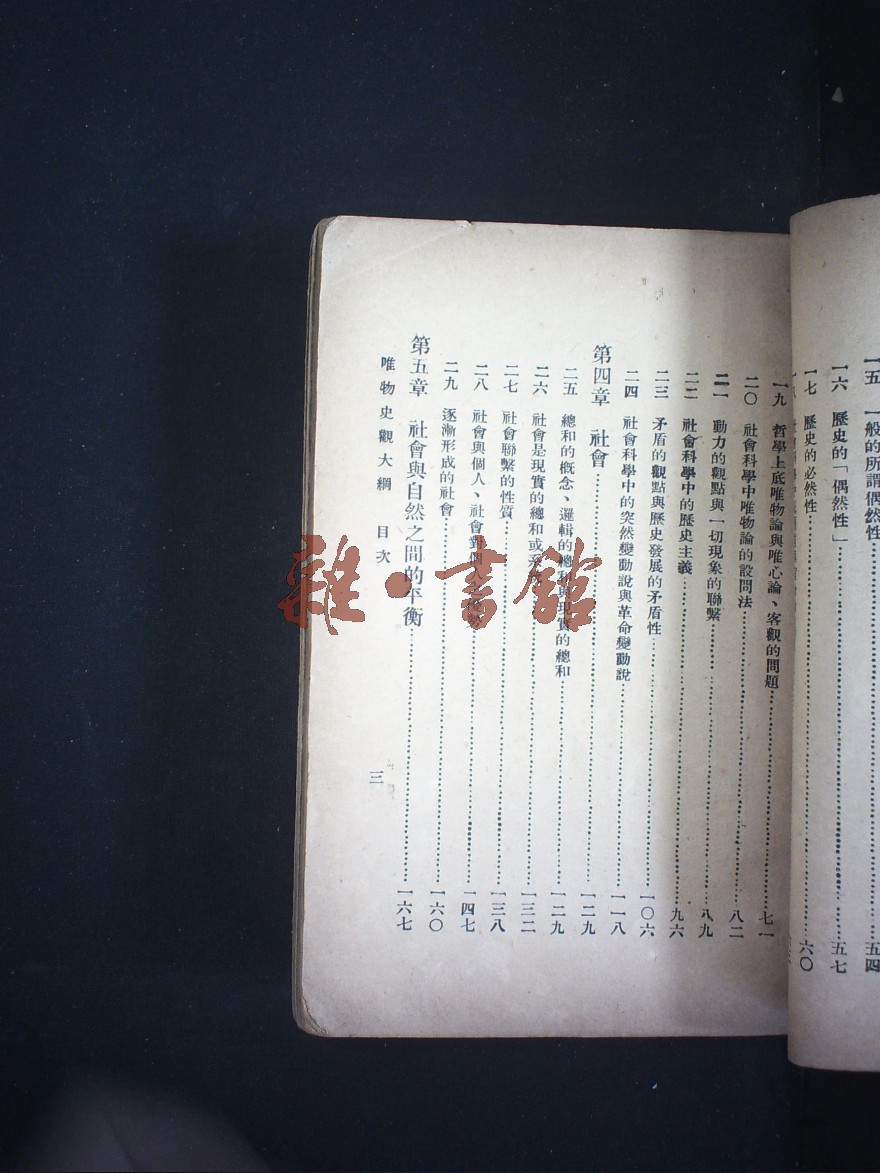 一五　一般的所謂偶然性……五四
一六　歷史的「偶然性」……五七
一七　歷史的必然性……六〇
一九　哲學上底唯物論與唯心論、客觀的問題……七一
二〇　社會科學中唯物論的設問法……八二
二一　動力的觀點與一切現象的聯繫……八九
二二　社會科學中的歷史主義……九六
二三　矛盾的觀點與歷史發展的矛盾性……一〇六
二四　社會科學中的突然變動說與革命變動說……一一八
第四章　社會……一二九
二五　總和的概念、邏輯的總和與現實的總和……一二九
二六　社會是現實的總和或……一三二
二七　社會聯繫的性質……一三八
二八　社會與個人、社會對個人……一四七
二九　逐漸形成的社會……一六〇
第五章　社會與自然之間的平衡……一六七
唯物史觀大綱　目次
三
雜·書館